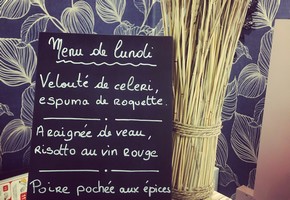 Menu de lundi
Velouté de celeri,
espuma de roquette.
Araignée de veau,
Risotto au vin rouge
Poire pochée aux épices